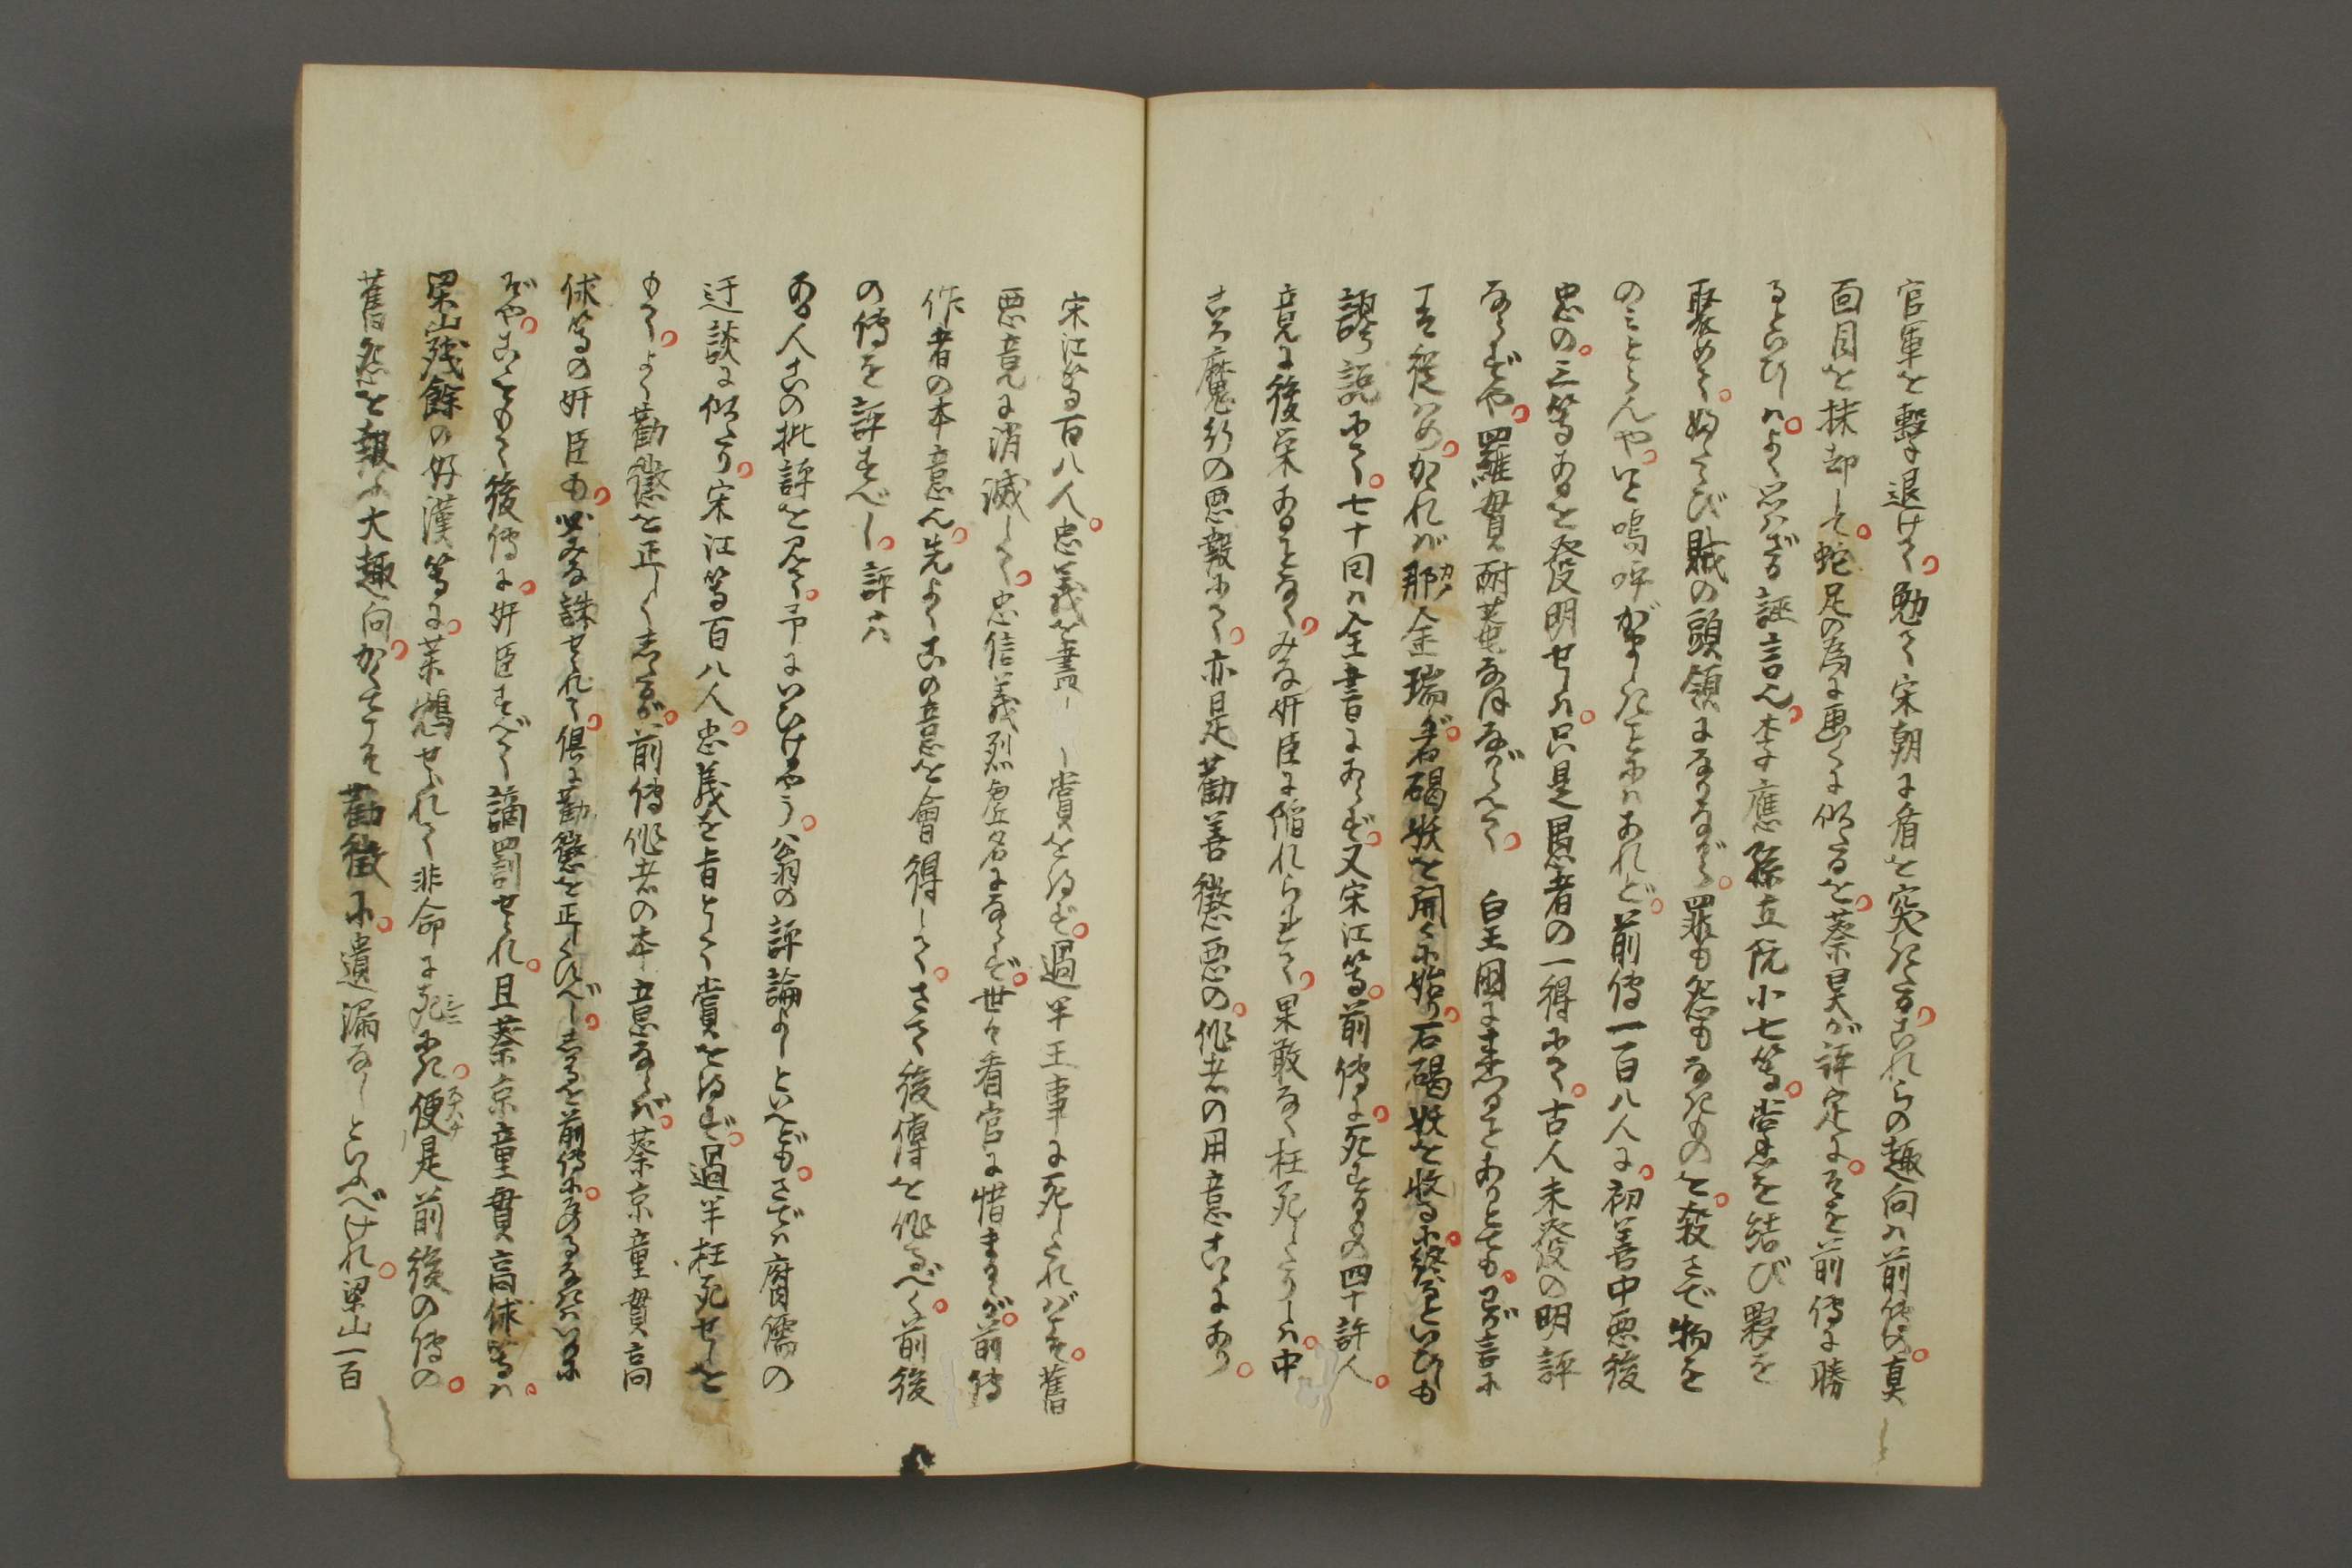 官軍を撃退けて。勉て宋朝に盾を突たる。これらの趣向は前傳の。真
面目を抹却して。蛇足の為に画くに似たるを。蔡昊が評定に。そを前傳に勝
るといひしは。よく思はざる誣言也。李應孫立阮小七等。嘗黨を結び夥を
聚めて。ふたゝび賊の頭領になりながら。罪も怨もなきものを。殺さで物を
のみとらんや。いと嗚呼がましきことにはあれど。前傳一百八人に。初善中悪後
忠の。三等あるを發明せしは。只是愚者の一得にて。古人未發の明評
ならずや。羅貫酎菴なほながらへて。　白玉國にまることありとても。吾が言に
　従はめ。かれば那金瑞が。石碣妖を開くに始り。石碣妖を收るに終るといひしも
謬説にて。七十回は全書にあらず。又宋江等。前傳に死するもの四十許人。
竟に後栄あることなく。みな奸臣に陷れられて。果敢なく枉死したりしは。中
ころ魔行の悪報にて。亦是勧善懲悪の。作者の用意こゝにあり。
宋江等百八人。忠義を盡しゝ賞を得ず。過半王事に死したればこそ。舊
悪竟に消滅して。忠信義烈虚名にならず。世々看官に惜まるゝが。前傳
作者の本意也。先よくこの意を會得して。さて後傳を作るべく。前後
の傳を評すべし。評には
ある人この批評を見て。予にいひけるやう。翁の評論よしといへども。さでは腐儒の
迂談に似たり。宋江等百八人。忠義を旨として賞を得ず。過半枉死せしを
もて。よく勧懲を正しくしたるが。前傳作者の本意ならば。蔡京童貫高
俅等の奸臣も。必みな誅せられて。倶に勧懲を正しくすべし。しかるを前傳に。そのことなきはいかに
ぞや。こゝをもて後傳に。奸臣すべて謫罰せられ。且蔡京童貫高俅等は。
梁山残餘の好漢等に。薬鴆せられて非命に死にき。便是前後の傳の。
舊怨を報ふ大趣向。かくてこそ勧懲に。遺漏なしといふべけれ。梁山一百